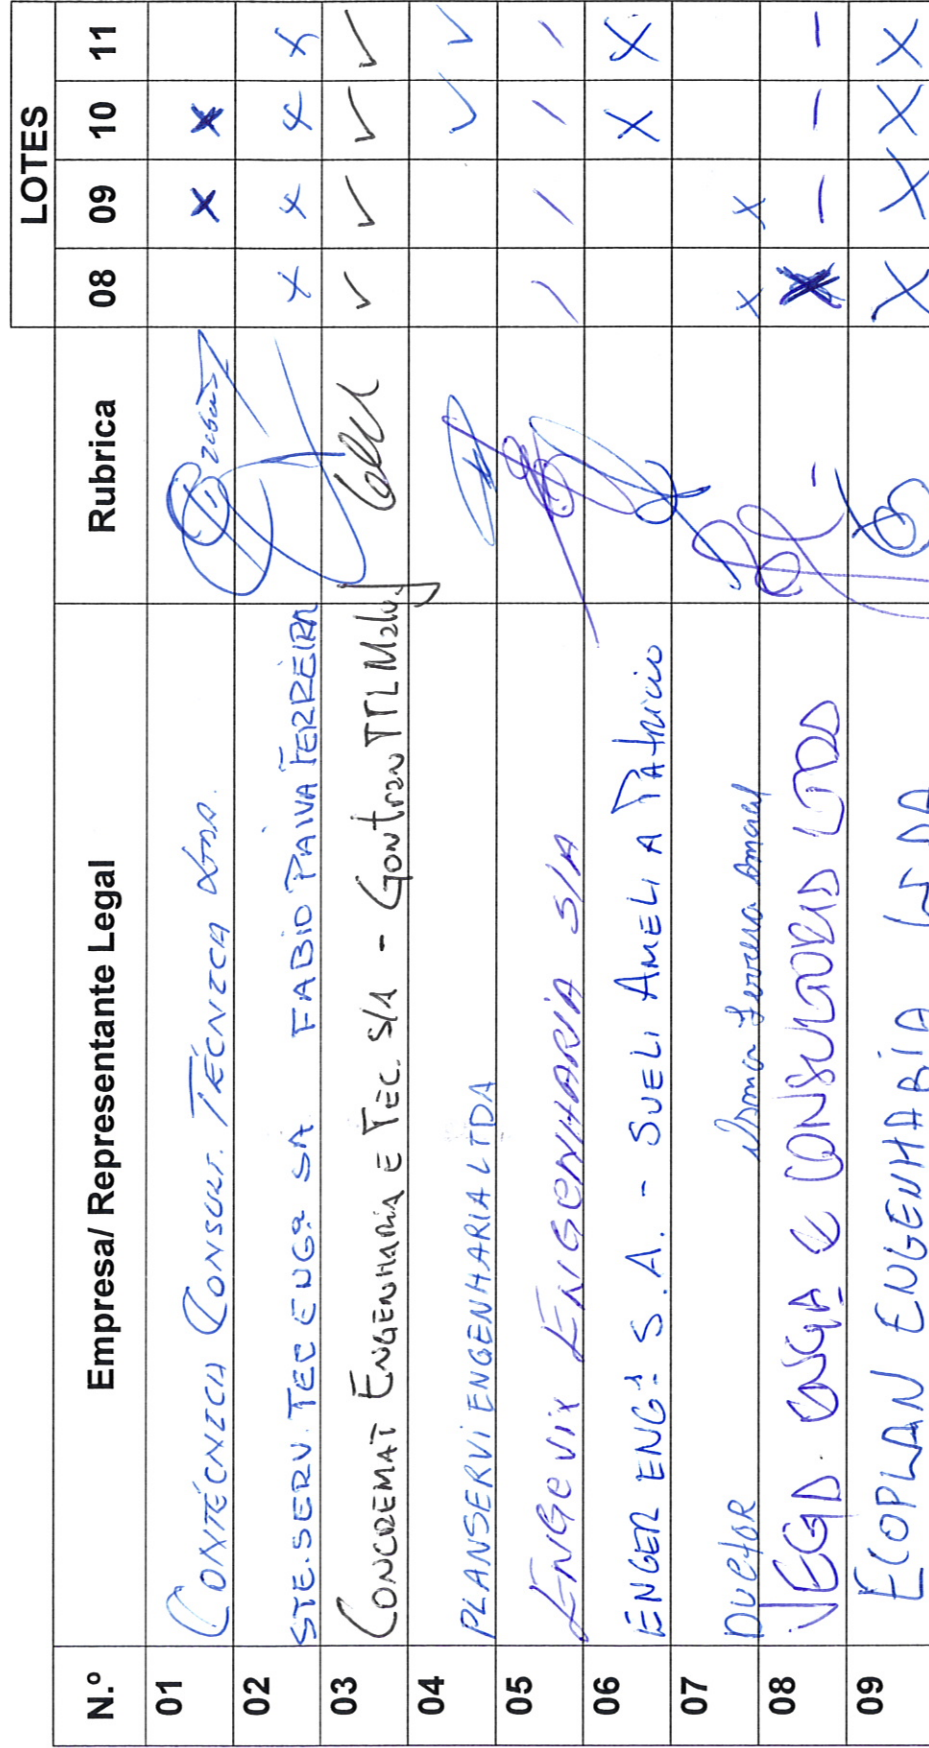 LOTES
N.º Empresa/ Representante Legal Rubrica 08 09 10 11
01 CONTÉCNICA CONSULT. TÉCNICA LTDA. X X
02 STE.SERV. TEC ENGª SA FABIO PAIVA FERREIRA X X X X
03 CONCREMAT ENGENHARIA E TEC. S/A - GONTRAN TTL Maluf ✓ ✓ ✓ ✓
04 PLANSERVI ENGENHARIA LTDA ✓ ✓
05 ENGEVIX ENGENHARIA S/A / / / /
06 ENGER ENGª S.A. - SUELI AMELIA PATRICIO X X
07 DUCTOR Ferreira Amaral X X
08 ENGA E CONSULTORIA LTDA X - - -
09 ECOPLAN ENGENHARIA LTDA X X X X